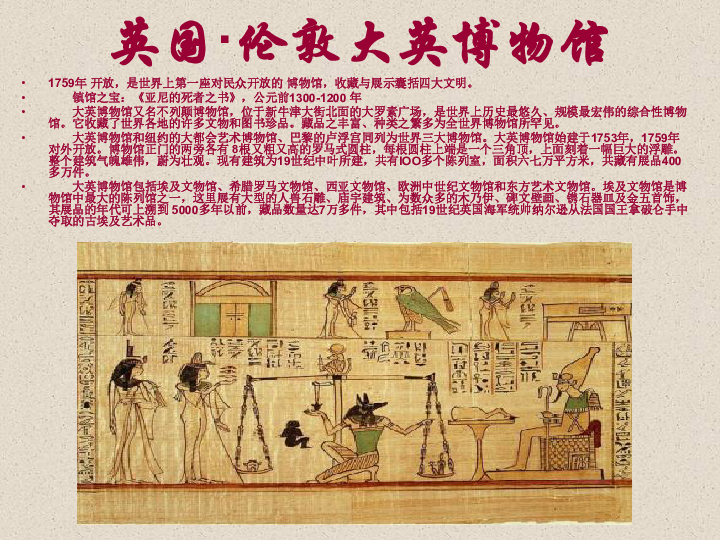 英国·伦敦大英博物馆
• 1759年 开放，是世界上第一座对民众开放的 博物馆，收藏与展示囊括四大文明。
• 镇馆之宝：《亚尼的死者之书》，公元前1300-1200 年
• 大英博物馆又名不列颠博物馆，位于新牛津大街北面的大罗素广场，是世界上历史最悠久、规模最宏伟的综合性博物
馆。它收藏了世界各地的许多文物和图书珍品。藏品之丰富、种类之繁多为全世界博物馆所罕见。
• 大英博物馆和纽约的大都会艺术博物馆、巴黎的卢浮宫同列为世界三大博物馆。大英博物馆始建于1753年，1759年
对外开放。博物馆正门的两旁各有 8根又粗又高的罗马式圆柱，每根圆柱上端是一个三角顶，上面刻着一幅巨大的浮雕。
整个建筑气魄雄伟，蔚为壮观。现有建筑为19世纪中叶所建，共有IOO多个陈列室，面积六七万平方米，共藏有展品400
多万件。
• 大英博物馆包括埃及文物馆、希腊罗马文物馆、西亚文物馆、欧洲中世纪文物馆和东方艺术文物馆。埃及文物馆是博
物馆中最大的陈列馆之一，这里展有大型的人兽石雕、庙宇建筑、为数众多的木乃伊、碑文壁画、镌石器皿及金五首饰，
其展品的年代可上溯到 5000多年以前，藏品数量达7万多件，其中包括19世纪英国海军统帅纳尔逊从法国国王拿破仑手中
夺取的古埃及艺术品。